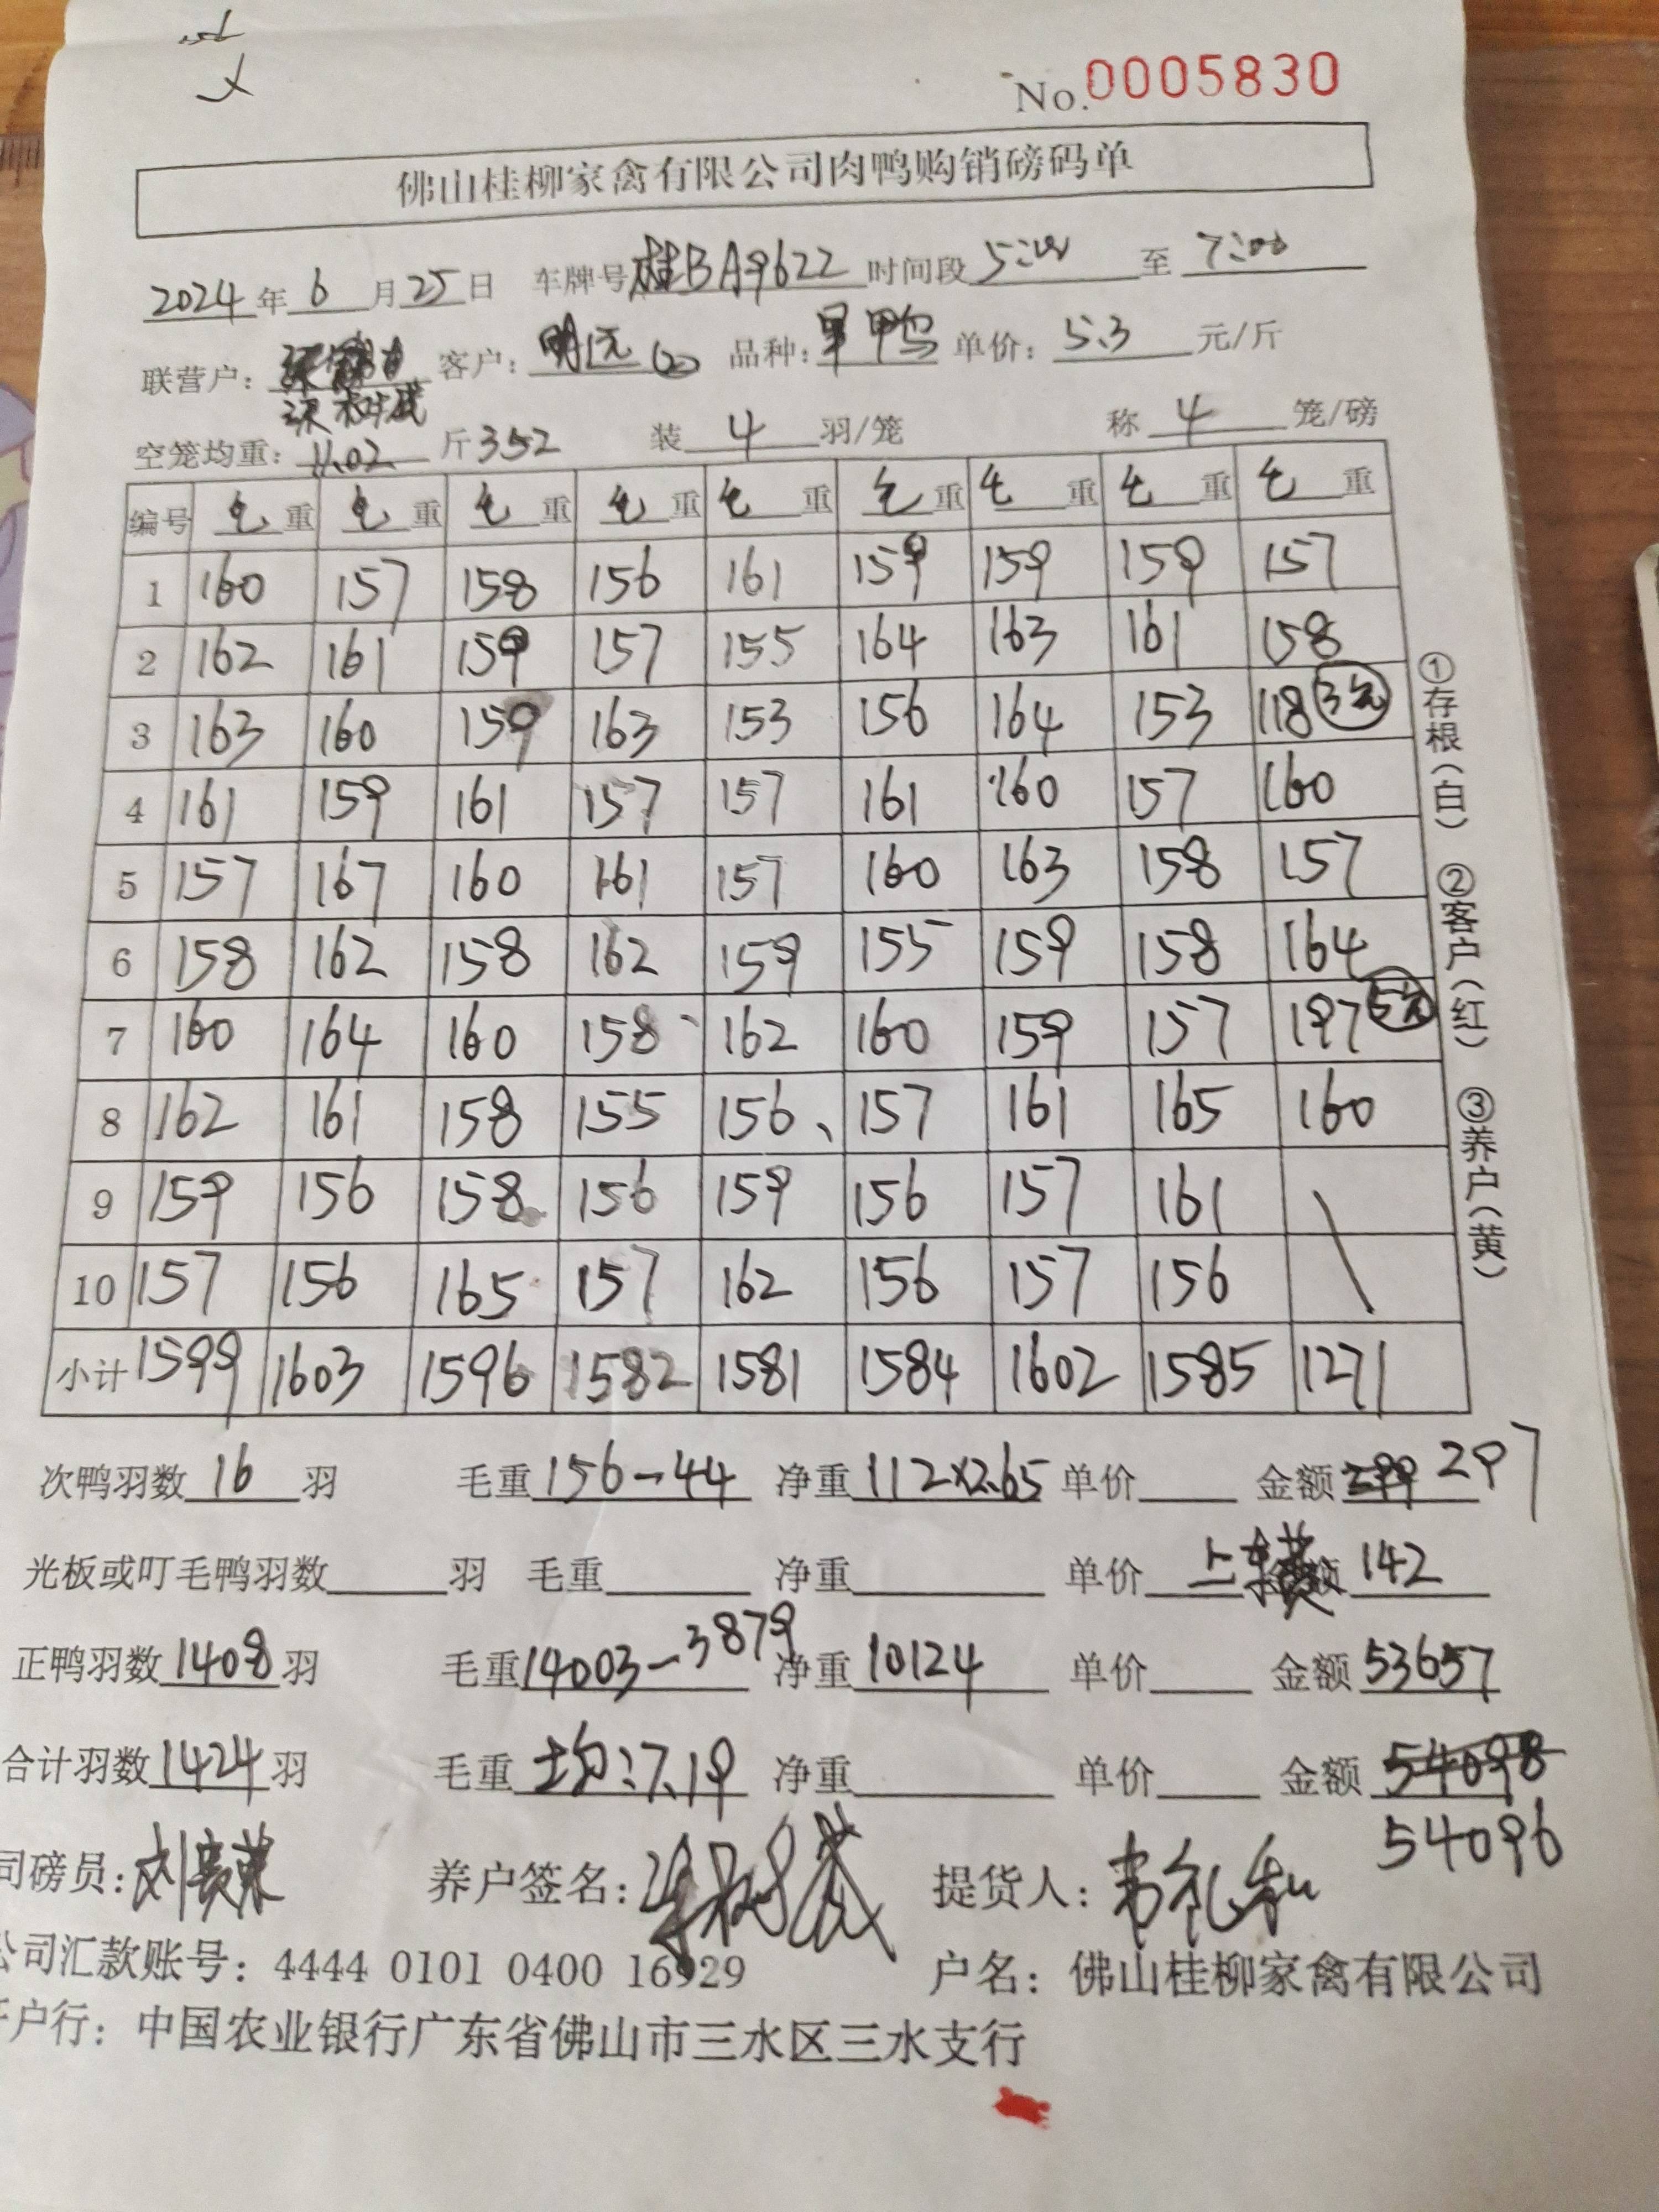 No. 0005830
佛山桂柳家禽有限公司肉鸭购销磅码单
2024年 6 月 25 日 车牌号 桂BA9622 时间段 5:00 至 7:00
联营户: 客户: 明远 品种: 单价: 5.3 元/斤
空笼均重: 11.02 斤 352 装 4 羽/笼 称 4 笼/磅
编号 毛重 毛重 毛重 毛重 毛重 毛重 毛重 毛重 毛重
1 160 157 158 156 161 159 159 159 157
2 162 161 159 157 155 164 163 161 158
3 163 160 159 163 153 156 164 153 118 3元
4 161 159 161 157 157 161 160 157 160
5 157 167 160 161 157 160 163 158 157
6 158 162 158 162 159 155 159 158 164
7 160 164 160 158 162 160 159 157 197 5元
8 162 161 158 155 156 157 161 165 160
9 159 156 158 156 159 156 157 161
10 157 156 165 157 162 156 157 156
小计 1599 1603 1596 1582 1581 1584 1602 1585 1271
①存根(白) ②客户(红) ③养户(黄)
次鸭羽数 16 羽 毛重 156-44 净重 112×2.65 单价 金额 297
光板或叮毛鸭羽数 羽 毛重 净重 单价 上车费 142
正鸭羽数 1408 羽 毛重 14003-3879 净重 10124 单价 金额 53657
合计羽数 1424 羽 毛重 均:7.19 净重 单价 金额 54098
54096
司磅员: 养户签名: 提货人: 韦礼和
公司汇款账号: 4444 0101 0400 16929 户名: 佛山桂柳家禽有限公司
开户行: 中国农业银行广东省佛山市三水区三水支行